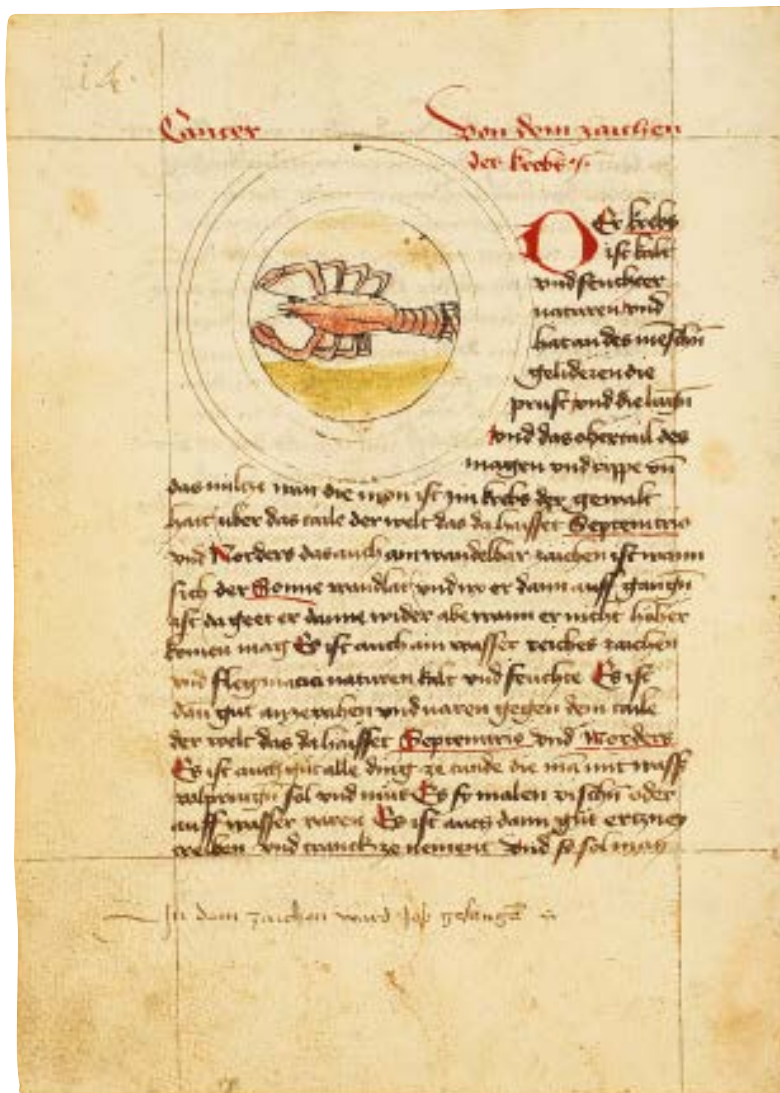 Cancer
Von dem zaichen
der krebs
Der krebs
ist kalt
vnd feuchter
naturen vnd
hat an des menschn̄
gelideren die
prust vnd die
vnd das obertail des
magen vnd rippe vn̄
das miltze wan die mon ist jm krebs der gewalt
hatt über das taile der welt das da haisset Septemtrio
vnd Norders das auch ain wandelbar zaichen ist wann
sich der Sonne wandlat vnd wo er dann auff gangn̄
ist da geet er danne wider abe wann er nicht höher
komen mag Es ist auch ain wasser reiches zaichen
vnd flegmatica naturen kalt vnd feuchte Es ist
dan̄ gut vnd varen gegen dem taile
der welt das da haisset Septemtrio vnd Norders
Es ist auch gut alle ding ze die ma̅ mit wass̄
sol vnd müt Es sy malen vischn̄ oder
auff wasser varen Es ist auch dann gut ertzney
vnd tranck ze nement Vnd so sol man
In dem zaichen ward Job